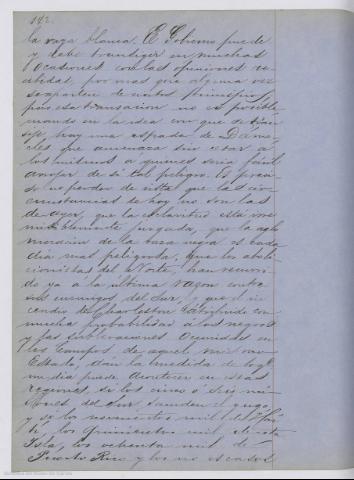 182.
la raza blanca. El Gobierno puede
y debe transigir en muchas
ocasiones con las opiniones re-
cibidas, por mas que alguna vez
se aparten de rectos principios,
pero esa transacion no es posible
cuando en la idea con que se
hay una espada de Dámo-
cles que amenaza sin cesar á
los mismos a quienes seria fácil
alejar de sí tal peligro. Es preci-
so no perder de vista que las cir-
cunstancias de hoy no son las
de ayer, que la esclavitud está
juzgada, que la aglo-
meracion de la raza negra es cada
dia mas peligrosa, que los aboli-
cionistas del Norte, han recurri-
do ya á la última razon contra
sus enemigos del Sur, y que el in-
cendio de Charleston atribuido con
mucha probabilidad a los negros
y las sublevaciones ocurridas en
los Campos de aquel mismo
Estado, dan la medida de lo que
un dia puede acontecer en esas
regiones, si los cinco ó seis mi-
llones del Sur sacuden el yugo,
y si los novecientos mil de Hay-
tí, los quinientos mil de esta
Isla, los ochenta mil de
Puerto Rico y los no escasos